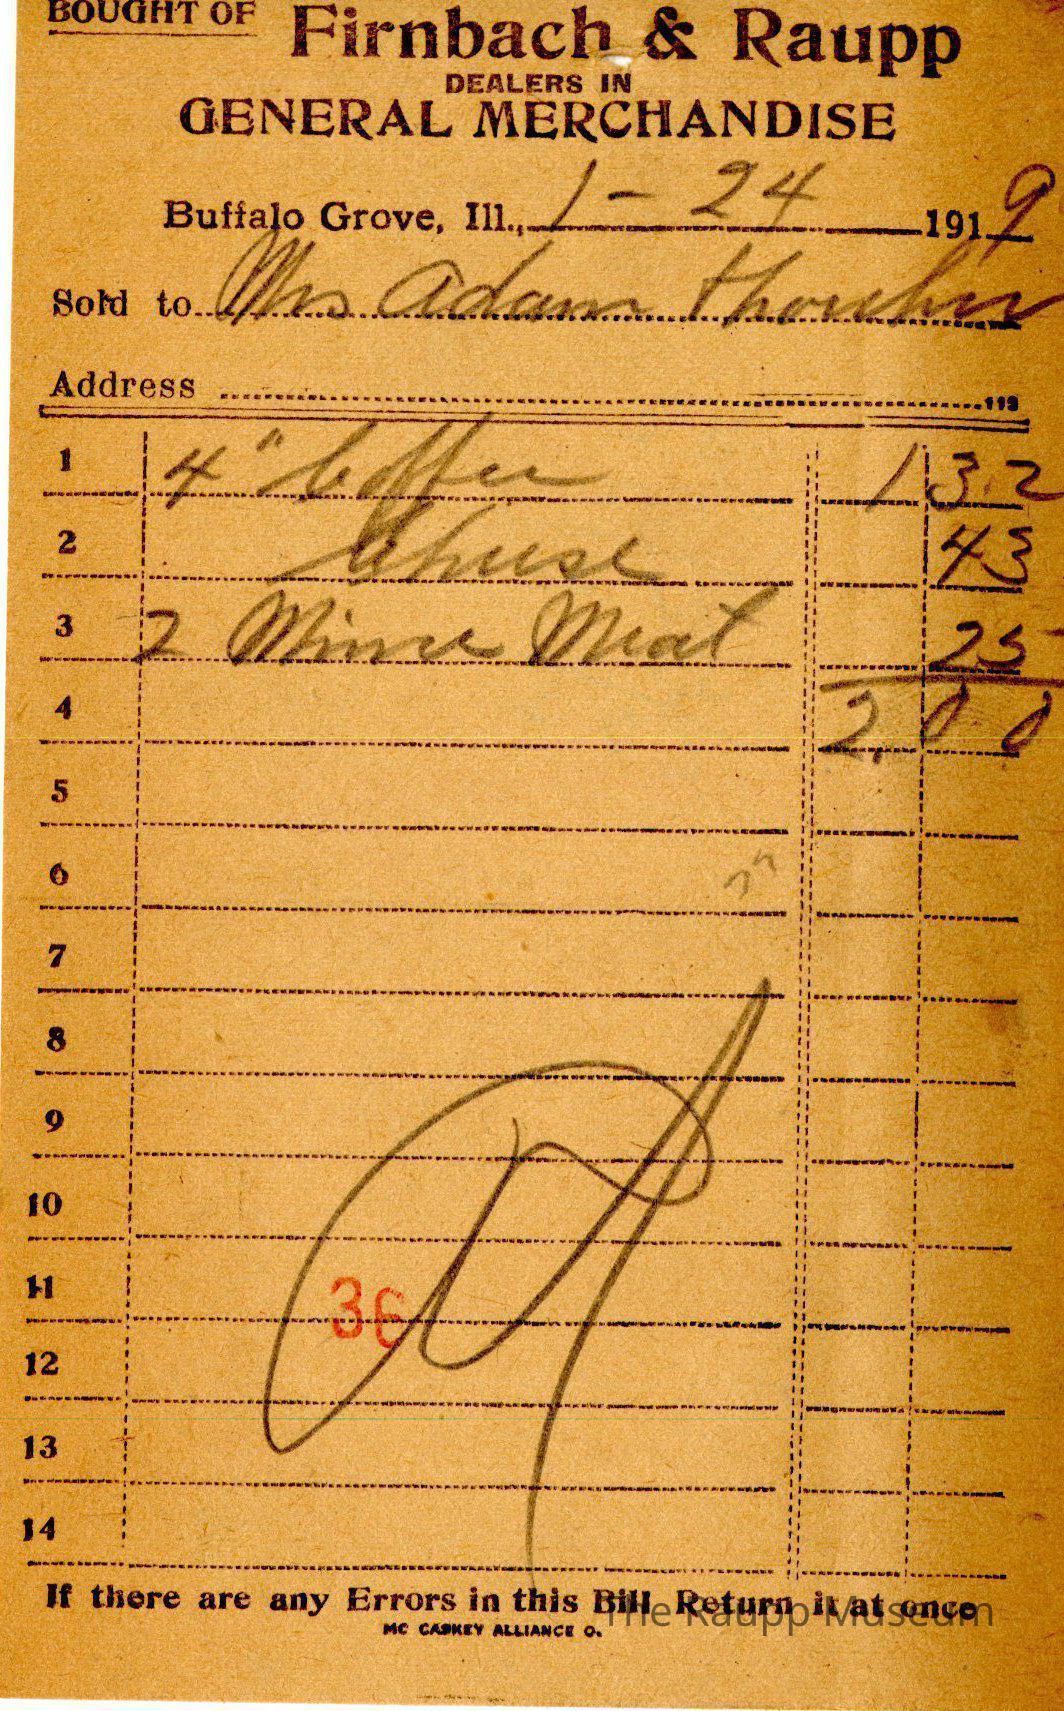 BOUGHT OF
Firnbach & Raupp
DEALERS IN
GENERAL MERCHANDISE
Buffalo Grove, Ill., 1 - 24 1919
Sold to Mrs Adam
Address 113
1 4" Coffee 1 3.2
2 Cheese 43
3 2 Mince Meat 25
4 2.00
5
6
7
8
9
10
11
36
12
13
14
If there are any Errors in this Bill Return it at once
The Raupp Museum
MC CASKEY ALLIANCE O.